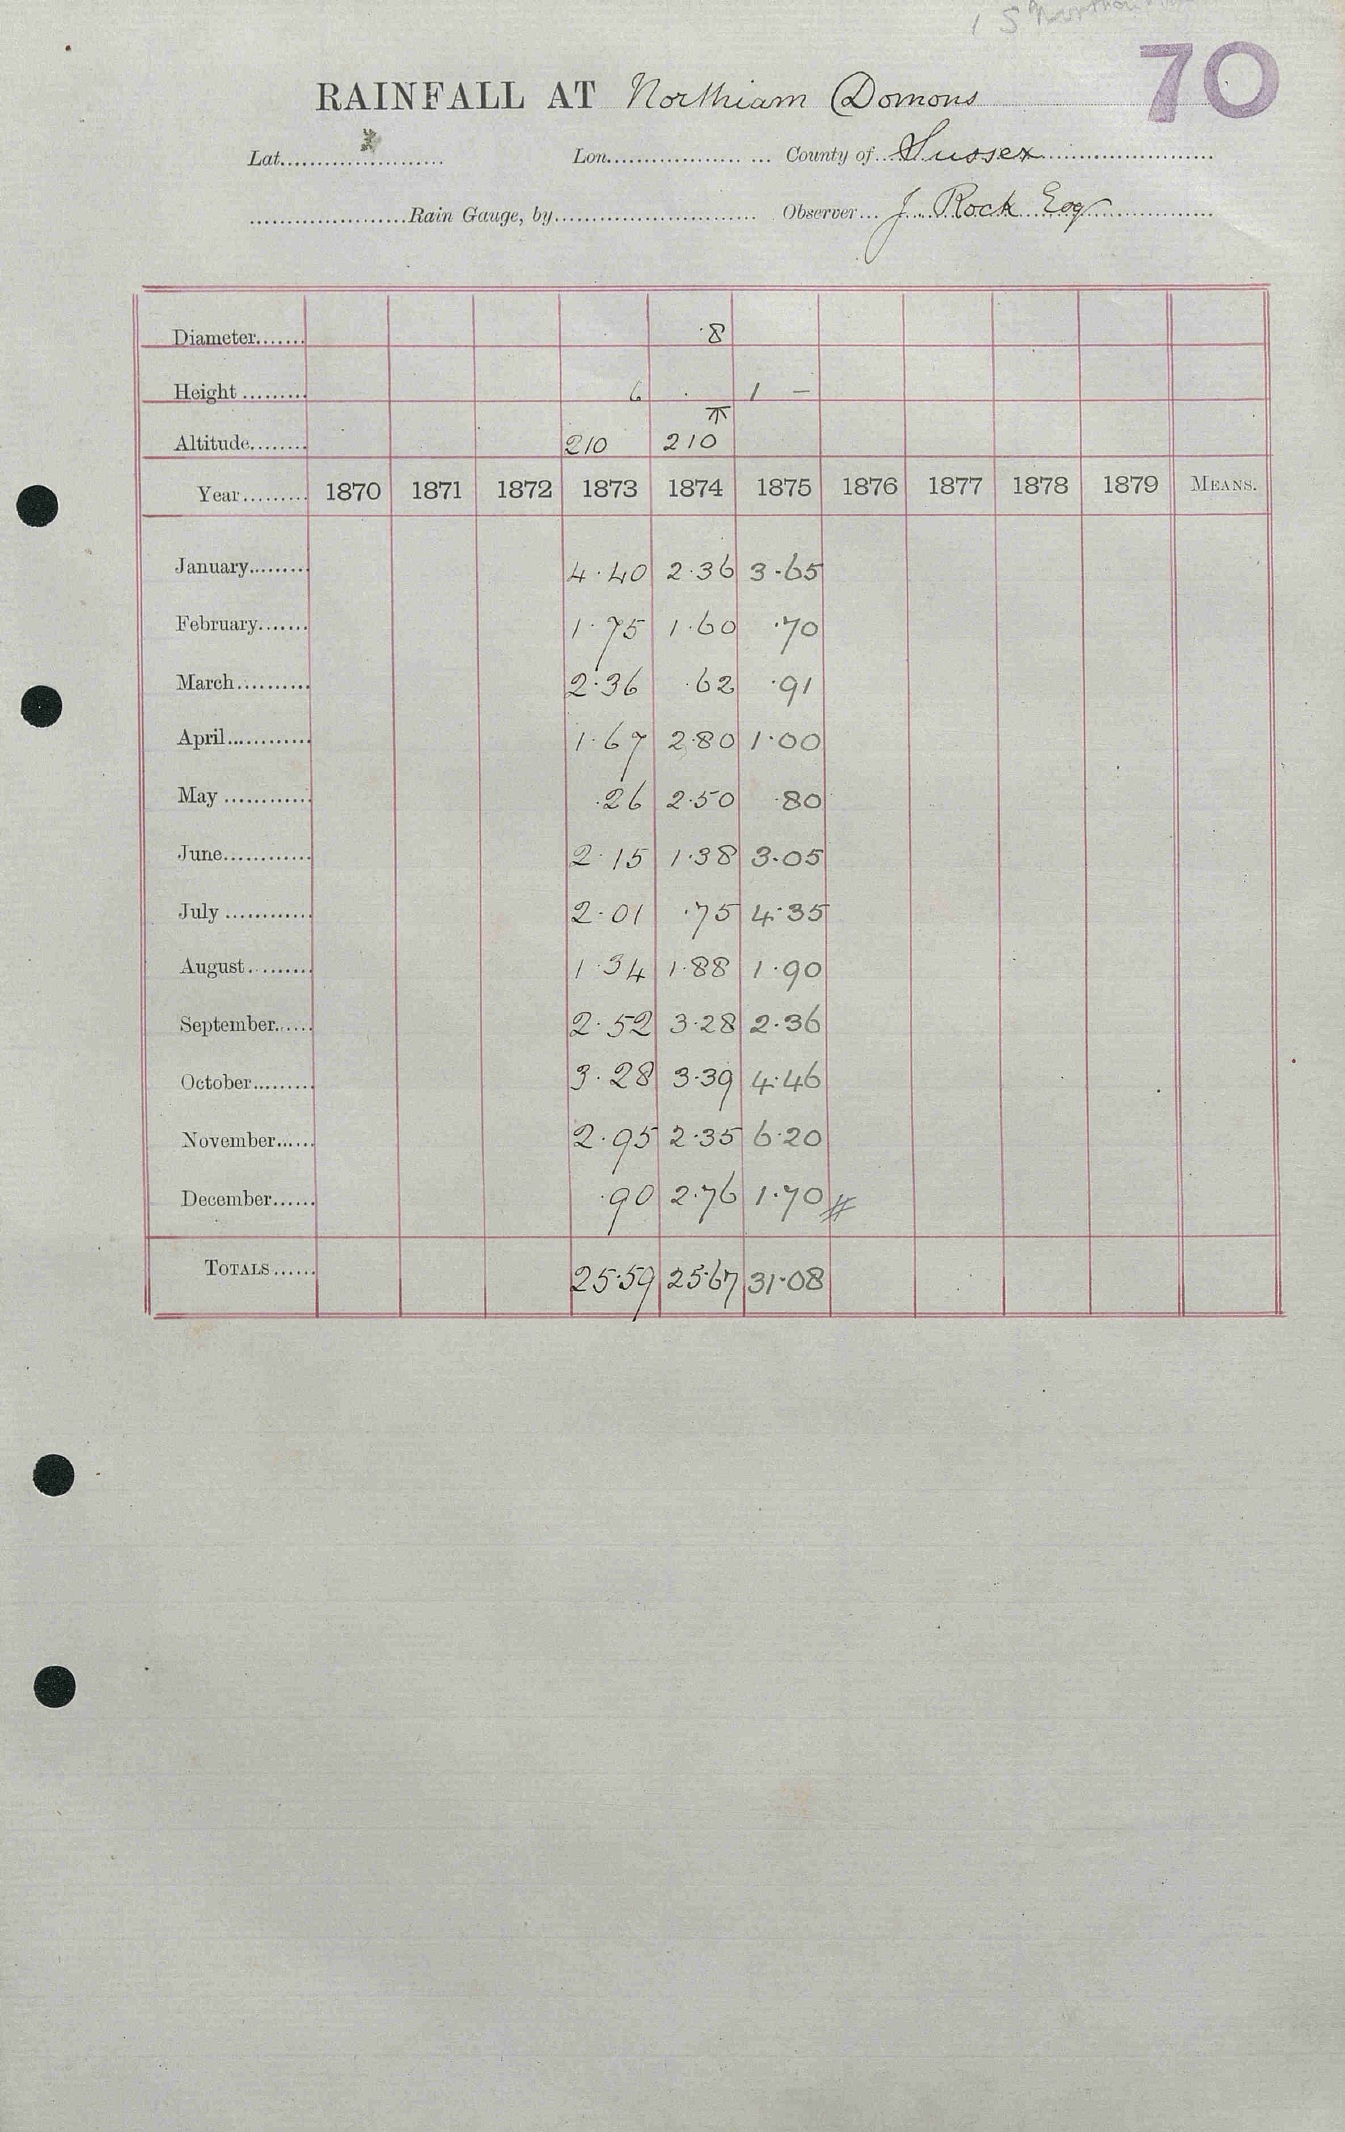 15
70
RAINFALL AT Northiam Domons
Lat. Lon. County of Sussex
Rain Gauge, by Observer J. Rock Esq
Diameter 8
Height 6 1 —
Altitude 210 210 ⊼
Year 1870 1871 1872 1873 1874 1875 1876 1877 1878 1879 MEANS.
January 4.40 2.36 3.65
February 1.75 1.60 .70
March 2.36 .62 .91
April 1.67 2.80 1.00
May .26 2.50 .80
June 2.15 1.38 3.05
July 2.01 .75 4.35
August 1.34 1.88 1.90
September 2.52 3.28 2.36
October 3.28 3.39 4.46
November 2.95 2.35 6.20
December .90 2.76 1.70 #
TOTALS 25.59 25.67 31.08